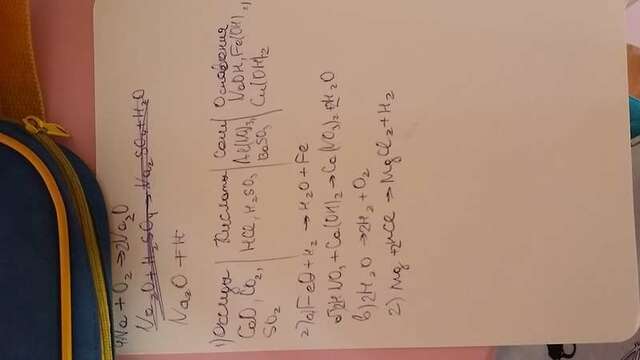 4Na + O₂ → 2Na₂O
Na₂O + H₂SO₄ → Na₂SO₄ + H₂O
Na₂O + H
1) Оксиды | Кислоты | Соли | Основания
CaO, CO₂, | HCl, H₂SO₃ | Al(NO₃)₃, | NaOH, Fe(OH)₂,
SO₂ | BaSO₃ | Cu(OH)₂
2) а) FeO + H₂ → H₂O + Fe
б) 2HNO₃ + Ca(OH)₂ → Ca(NO₃)₂ + 2H₂O
в) 2H₂O → 2H₂ + O₂
г) Mg + 2HCl → MgCl₂ + H₂